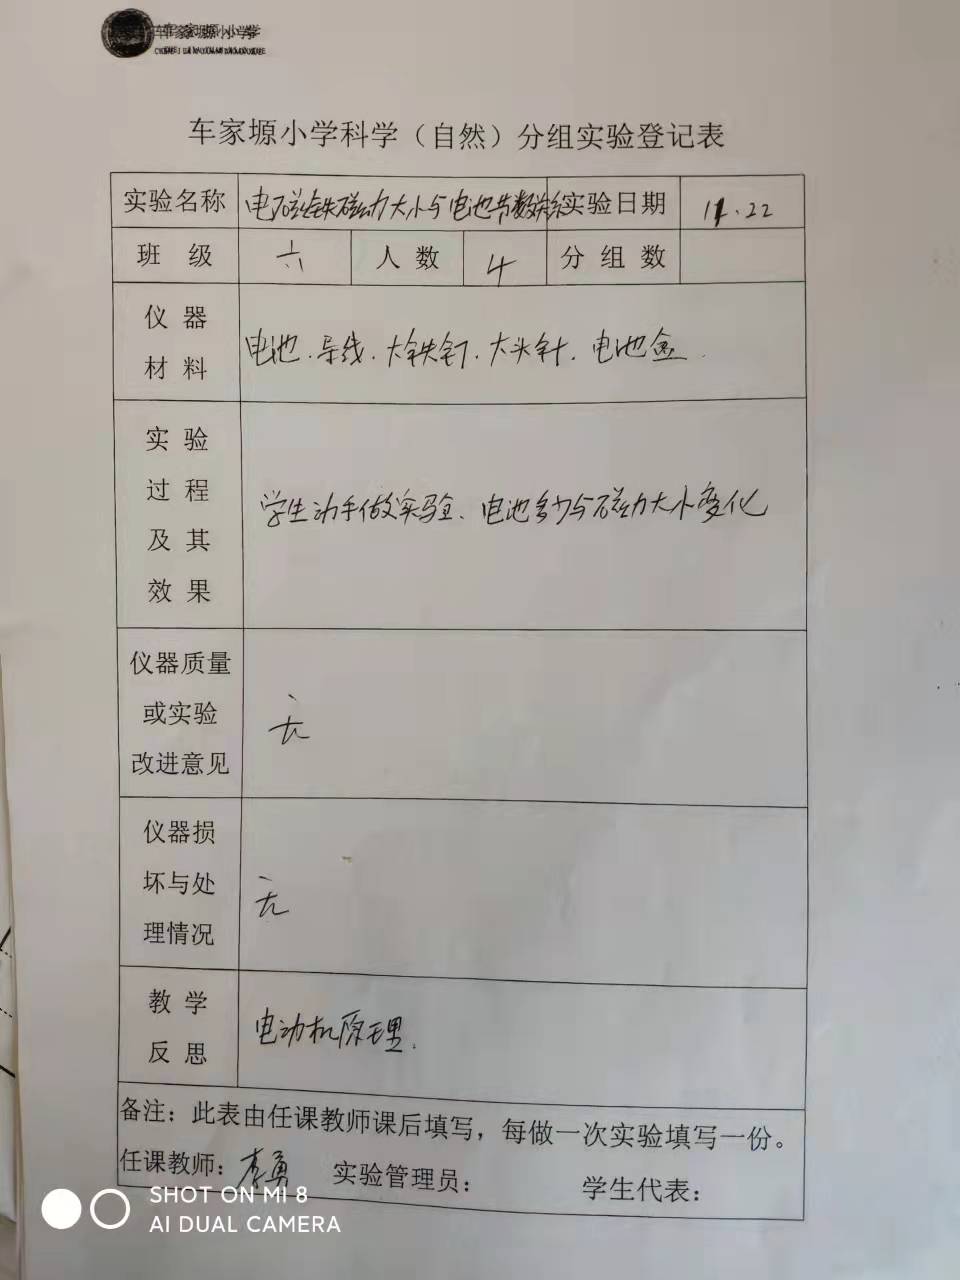 车家塬小学
车家塬小学科学（自然）分组实验登记表
实验名称 电磁铁磁力大小与电池节数关系 实验日期 11.22
班 级 六 人 数 4 分 组 数
仪 器
材 料
电池、导线、大铁钉、大头针、电池盒.
实 验
过 程
及 其
效 果
学生动手做实验、电池多少与磁力大小变化
仪器质量
或实验
改进意见
无
仪器损
坏与处
理情况
无
教 学
反 思
电动机原理.
备注：此表由任课教师课后填写，每做一次实验填写一份。
任课教师：李勇 实验管理员： 学生代表：
SHOT ON MI 8
AI DUAL CAMERA